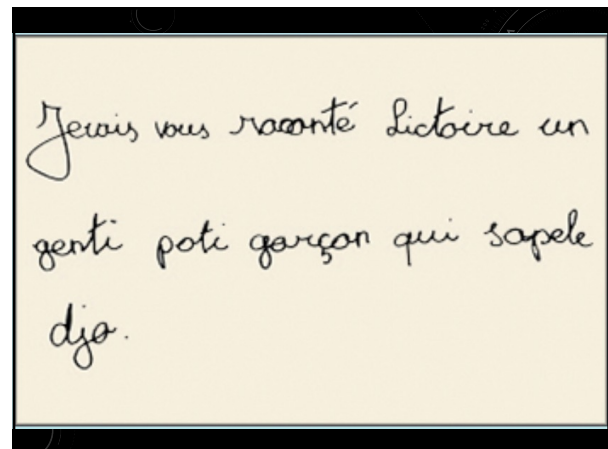 Jevais vous raconté Lictoire un
genti poti garçon qui sapele
djo.